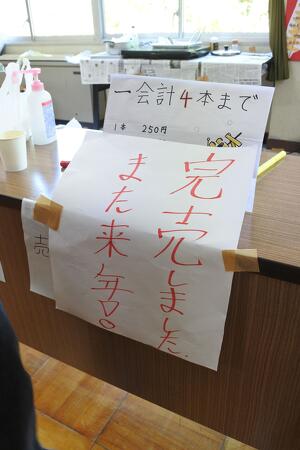 一会計4本まで
1本 250円
完売しました.
また来年◎。
売